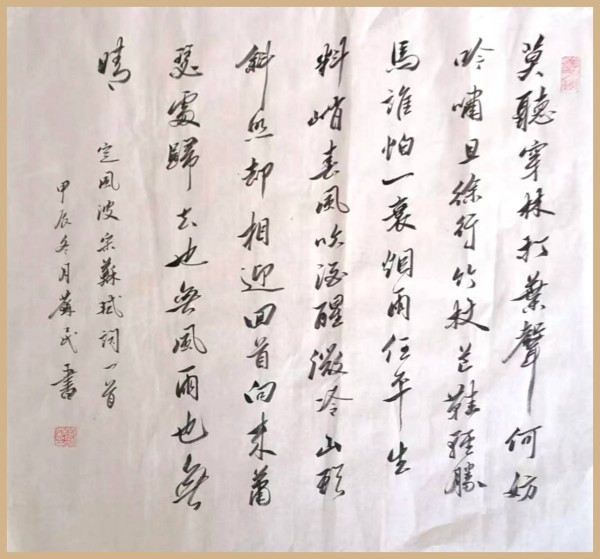 莫聽穿林打葉聲何妨
吟嘯且徐行竹杖芒鞋輕勝
馬誰怕一衰烟雨任平生
料峭春風吹酒醒微冷山頭
斜照却相迎回首向來蕭
瑟處歸去也無風雨也無
晴
定風波宋蘇軾詞一首
甲辰冬月民書